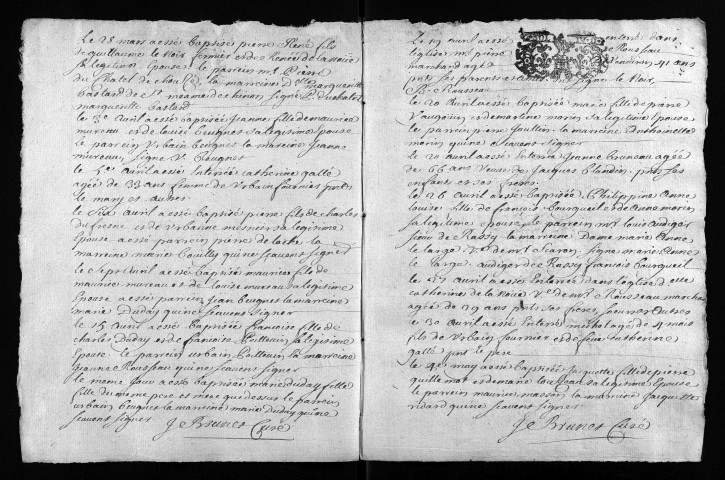 Le 28 mars a esté baptisé pierre René fils
de guillaume le Noir fermier et de Renée de la noüe
sa legitime Epouse le parrein mr Pierre
du Chatel de la marreine dlle marguerite
bastard de Signé P. duchatel
marguerite bastard
le 3e Avril a esté baptisée Jeanne fille de maurice
mureau et de louise beugnes sa legitime Epouse
le parrein Urbain beugnes la marreine Jeanne
mureau, Signé V. Beugnes
le 5e avril a esté Enterrée Catherine gallé
agée de 33 ans femme de Urbain fournier pnts
le mary et autres
le Six avril a esté baptisé pierre fils de charles
du fresne et de Urbanne mesnier sa legitime
Epouse a esté parrein pierre de la
marreine marie qui ne scavent signer
le 7 avril a esté baptisé maurice fils de
maurice mureau et de louise mureau sa legitime
Epouse a esté parrein jean beugnes la marreine
marie Duday qui ne scavent signer
le 15 avril a esté baptisée francoise fille de
charles Duday et de francoise Poitevin sa legitime
Epouse le parrein urbain Poitevin la marreine
jeanne Rousseau qui ne scavent signer
le meme jour a esté baptisée marie duday fille
fille du meme pere et mere que dessus le parrein
urbain beugnes la marreine marie Duday qui ne
scavent signer
J e Brunet Curé
Le 19 avril a esté enterré dans
leglise mr pierre Rousseau
marchand agé denviron 41 ans
pnts ses parents et Signé le Noir
Rousseau
le 20 Avril a esté baptisée marie fille de pierre
Vaugouin et de marie morin sa legitime Epouse
le parrein pierre Gaultier la marreine Anthoinette
morin qui ne scavent signer
le 21 avril a esté Enterré Jeanne bruneau agée
de 66 ans Veuve de Jacques blandin pnts ses
enfants et ses freres
le 26 Avril a esté baptisée Philippine Anne
louise fille de francois bourgueil et de Anne morin
sa legitime epouse le parrein mr louis Audiger
sieur de Rassy la marreine Dame marie Anne
le large Ve de mr Signé marie Anne
le large audiger de Rassy francois bourgueil
le 27 avril a esté Enterrée dans leglise delle
catherine de la noüe Ve de mr Rousseau marchand
agée de 29 ans pnts ses freres soeurs et autres
le 30 avril a esté Enterré michel agé de 4 mois
fils de Urbain fournier et de feue Catherine
gallé pnt le pere
le 4e may a esté baptisée Jaquette fille de pierre
guillemot et de marie sa legitime Epouse
le parrein maurice masson la marreine Jacquette
ridard qui ne scavent signer
J e Brunet Curé